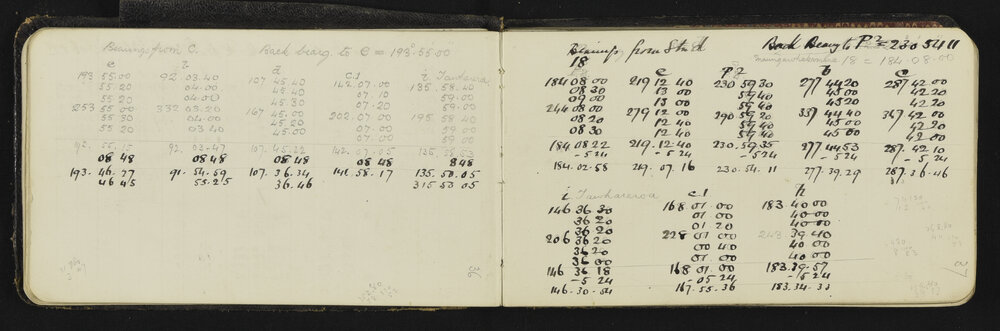 Bearings from C. Back bearg to C = 193°.55.00
e h d c1 i Tawharewa
193 55 00 92 03.40 107 45.40 142.07.00 135.58.40
55.20 04.00 45.40 07.10 59.00
55 20 04.00 45 30 07.20 59.00
253 55 00 332 03.20 167 45.00 202.07.00 195 58 40
55 30 04.00 45.20 07 00 59 00
55 20 03 40 45.00 07 00 59 00
55.15 92 03.47 107.45.22 142.07.05
08 48 08 48 08 48 08 48 8 48
193.46.27 91.54.59 107.36.34 141.58.17 135.50.05
46 45 55.25 36.46 315 53 05
36
Bearings from Std Back Bearg to P2 = 230 54 11
18 18 = 184.08.00
e P2 h C
184 08 00 219 12 40 230 59 30 277 44 20 287 42 00
08 30 13 00 59 40 45 00 42 20
09 00 13 00 59 40 45 20 42 20
244 08 00 279 12 00 290 59 20 337 44 40 347 42 00
08 20 12 40 59 40 45 00 42 20
08 30 12 40 59 40 45 00 42 00
184 08 22 219.12.40 230.59.35 277 44 53 287.42.10
- 5 24 - 5 24 - 5 24 - 5 24 - 5 24
184.02.58 219.07.16 230.54.11 277.39.29 287.36.46
i Tawharewa c1 h
146 36 30 168 01 00 183 40 00
36 20 01 00 40 00
36 20 01 20 40 00
206 36 20 228 01 00 243 39 40
36 20 00 40 40 00
36 00 01 00 40 00
146 36 18 168 01 00 183.39.57
- 5 24 - 05 24 - 5 24
146.30.54 167.55.36 183.34.33
37